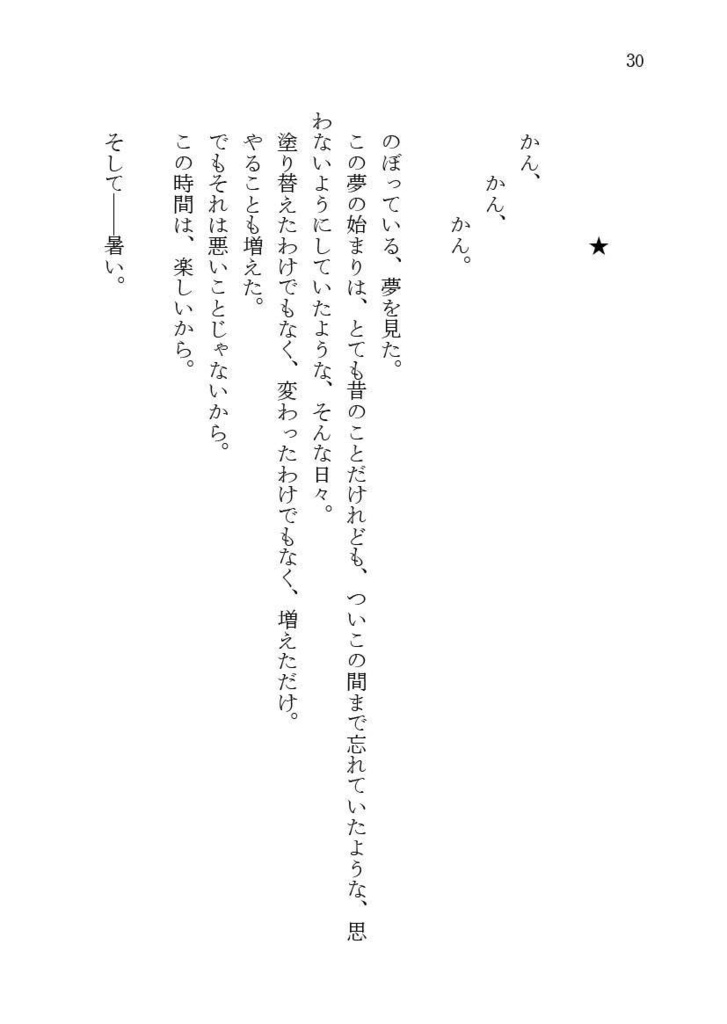 30
★
かん、
かん、
かん。
のぼっている、夢を見た。
この夢の始まりは、とても昔のことだけれども、ついこの間まで忘れていたような、思
わないようにしていたような、そんな日々。
塗り替えたわけでもなく、変わったわけでもなく、増えただけ。
やることも増えた。
でもそれは悪いことじゃないから。
この時間は、楽しいから。
そして――暑い。